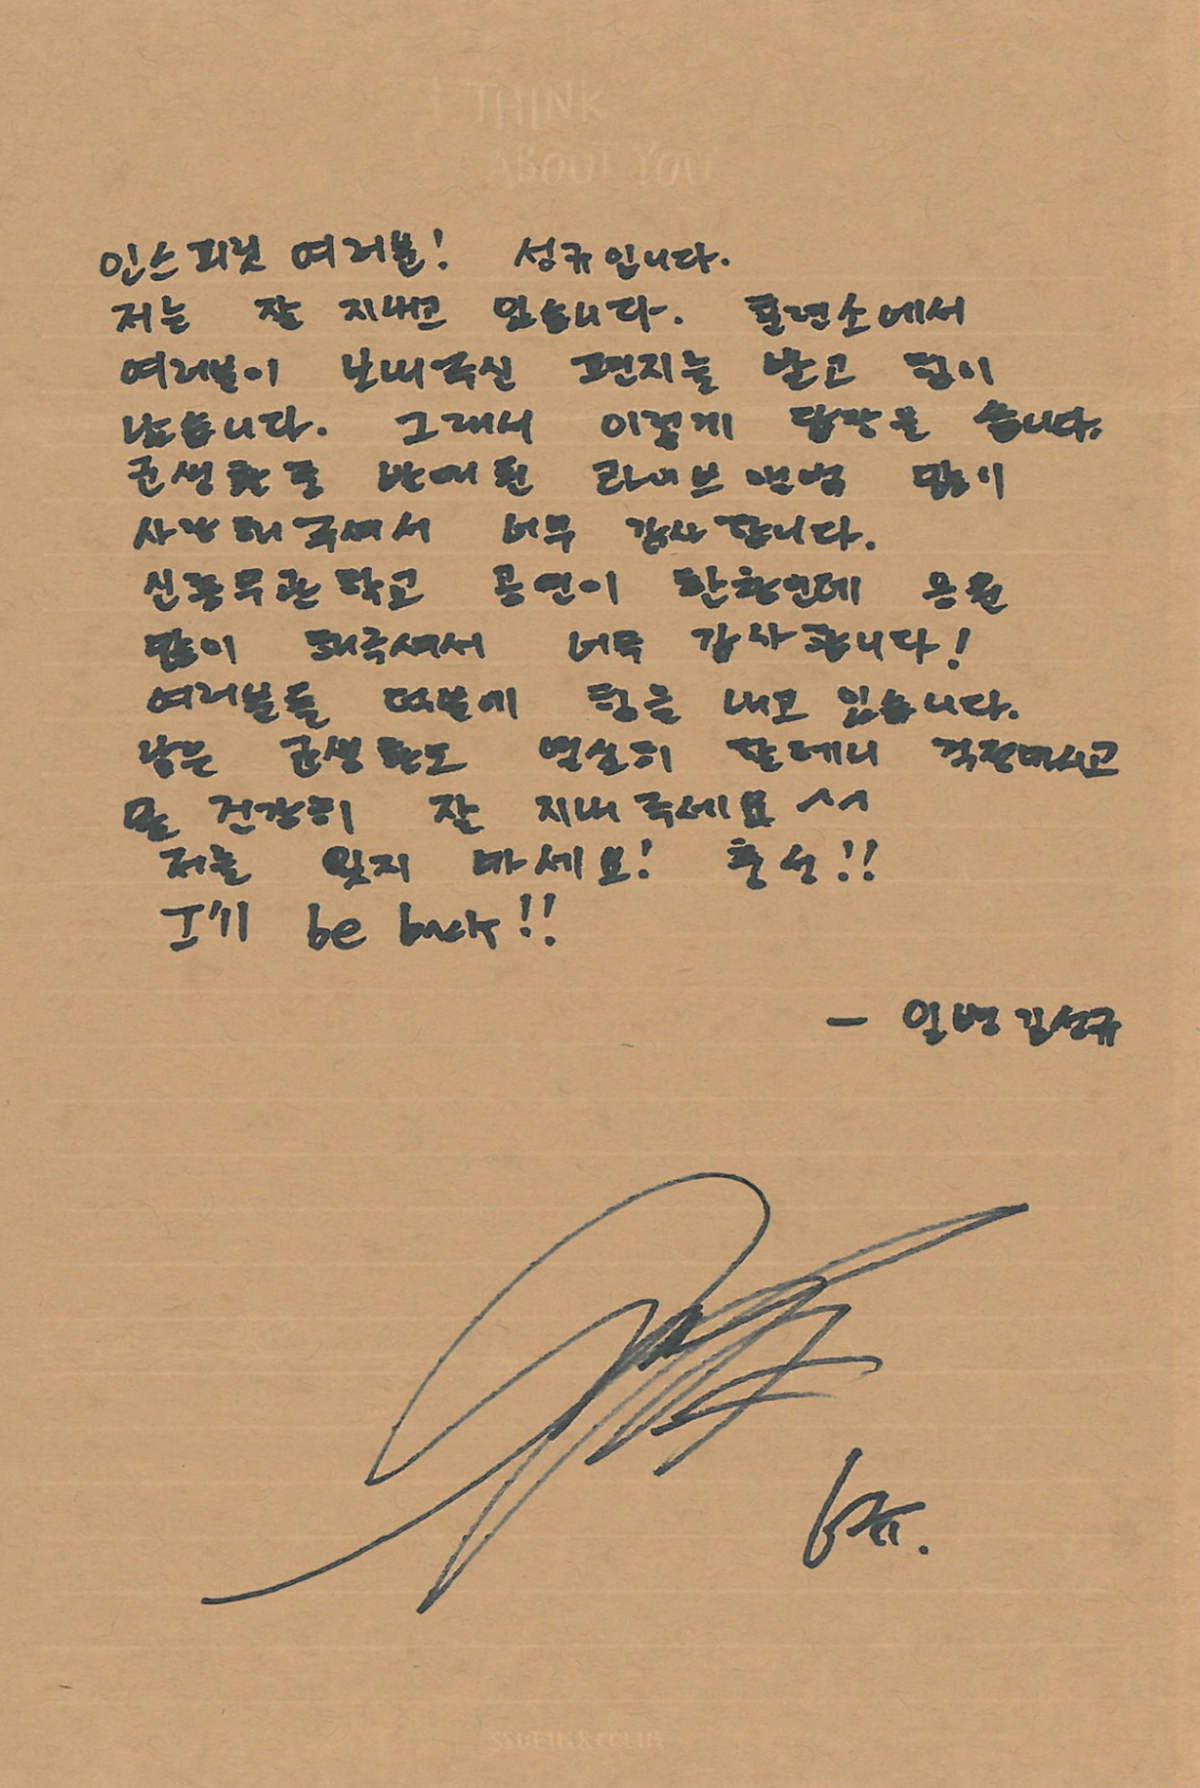 I THINK
ABOUT YOU
인스피릿 여러분! 성규입니다.
저는 잘 지내고 있습니다. 훈련소에서
여러분이 보내주신 편지를 받고 힘이
났습니다. 그래서 이렇게 답장을 씁니다.
군생활 중 발매된 라이브앨범 많이
사랑해주셔서 너무 감사합니다.
신흥무관학교 공연이 한창인데 응원
많이 해주셔서 너무 감사합니다!
여러분들 덕분에 힘을 내고 있습니다.
남은 군생활도 열심히 할테니 걱정마시고
몸 건강히 잘 지내주세요 ^^
저를 잊지 마세요! 충성!!
I'll be back!!
- 일병 김성규